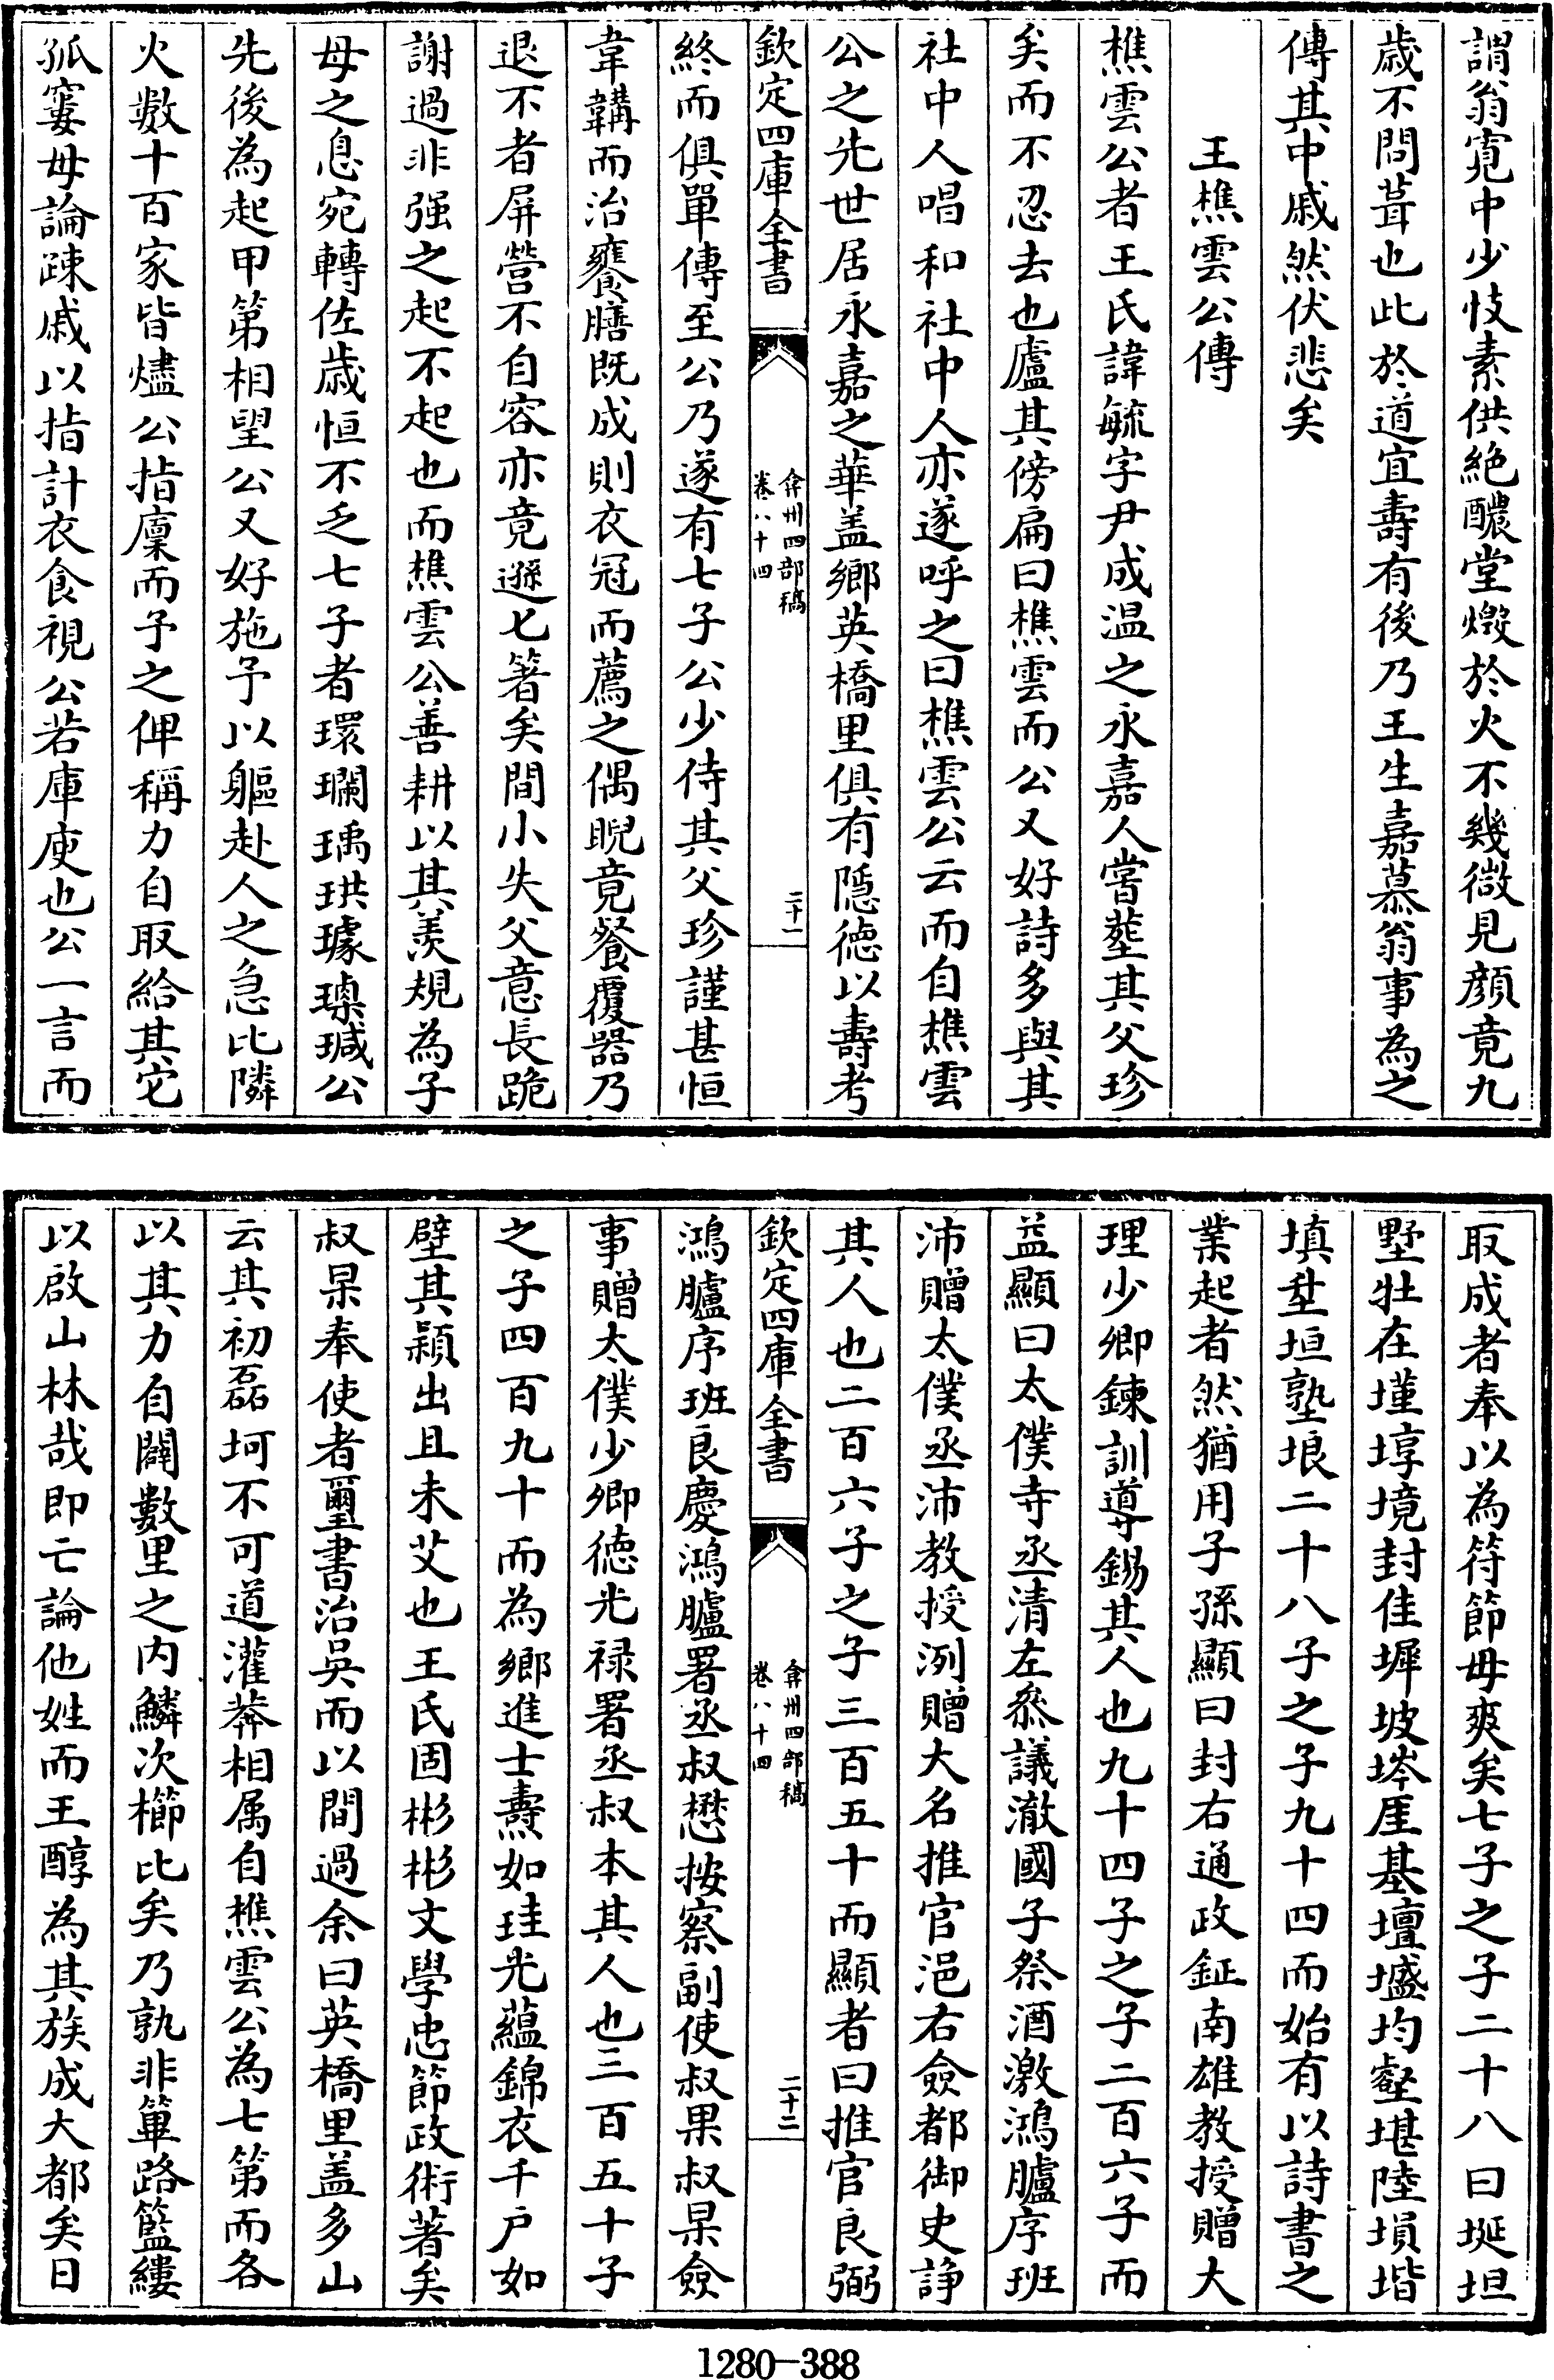 謂翁寛中少忮素供絶醲堂燉於火不幾微見顔竟九
歳不問葺也此於道宜壽有後乃王生嘉慕翁事為之
傳其中戚然伏悲矣
王樵雲公傳
樵雲公者王氏諱毓字尹成温之永嘉人嘗塟其父珍
矣而不忍去也廬其傍扁曰樵雲而公又好詩多與其
社中人唱和社中人亦遂呼之曰樵雲公云而自樵雲
公之先世居永嘉之華盖鄉英橋里俱有隠徳以壽考
欽定四庫全書
弇州四部稿
卷八十四
二十一
終而俱單傳至公乃遂有七子公少侍其父珍謹甚恒
韋韝而治饔膳既成則衣冠而薦之偶睨竟餐覆器乃
退不者屏營不自容亦竟遜匕箸矣間小失父意長跪
謝過非强之起不起也而樵雲公善耕以其羨規為子
母之息宛轉佐歳恒不乏七子者環瓓瑀珙璩璪瑊公
先後為起甲第相望公又好施予以軀赴人之急比隣
火數十百家皆燼公指廩而予之俾稱力自取給其它
孤窶毋論踈戚以指計衣食視公若庫庾也公一言而
取成者奉以為符節毋爽矣七子之子二十八曰埏坦
墅牡在墐埻境封佳墀坡埁厓基壇墭均壑堪陸塤堦
填堏垣塾垠二十八子之子九十四而始有以詩書之
業起者然猶用子孫顯曰封右通政鉦南雄教授贈大
理少卿鍊訓導錫其人也九十四子之子二百六子而
益顯曰太僕寺丞清左叅議澈國子祭酒激鴻臚序班
沛贈太僕丞沛教授洌贈大名推官浥右僉都御史諍
其人也二百六子之子三百五十而顯者曰推官良弼
欽定四庫全書
弇州四部稿
卷八十四
二十二
鴻臚序班良慶鴻臚署丞叔懋按察副使叔果叔杲僉
事贈太僕少卿徳光禄署丞叔本其人也三百五十子
之子四百九十而為鄉進士燾如珪光藴錦衣千戶如
壁其穎出且未艾也王氏固彬彬文學忠節政術著矣
叔杲奉使者璽書治吳而以間過余曰英橋里盖多山
云其初磊坷不可道灌莽相属自樵雲公為七第而各
以其力自闢數里之内鱗次櫛比矣乃孰非篳路籃縷
以啟山林哉即亡論他姓而王醇為其族成大都矣日
1280-388